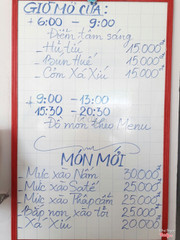 GIỜ MỞ CỬA:
+ 6:00 - 9:00
Điểm tâm sáng
_ Hủ tíu 15.000đ
_ Bún Huế 15.000đ
_ Cơm Xá Xíu 15.000đ
+ 9:00 - 13:00
15:30 - 20:30
Đồ món theo Menu
MÓN MỚI
_ Mực xào Nấm 30.000đ
_ Mực xào Satế 25.000đ
_ Mực xào Thập cẩm 25.000đ
_ Bắp non xào tỏi 25.000đ
_ Xá Xíu 20.000đ